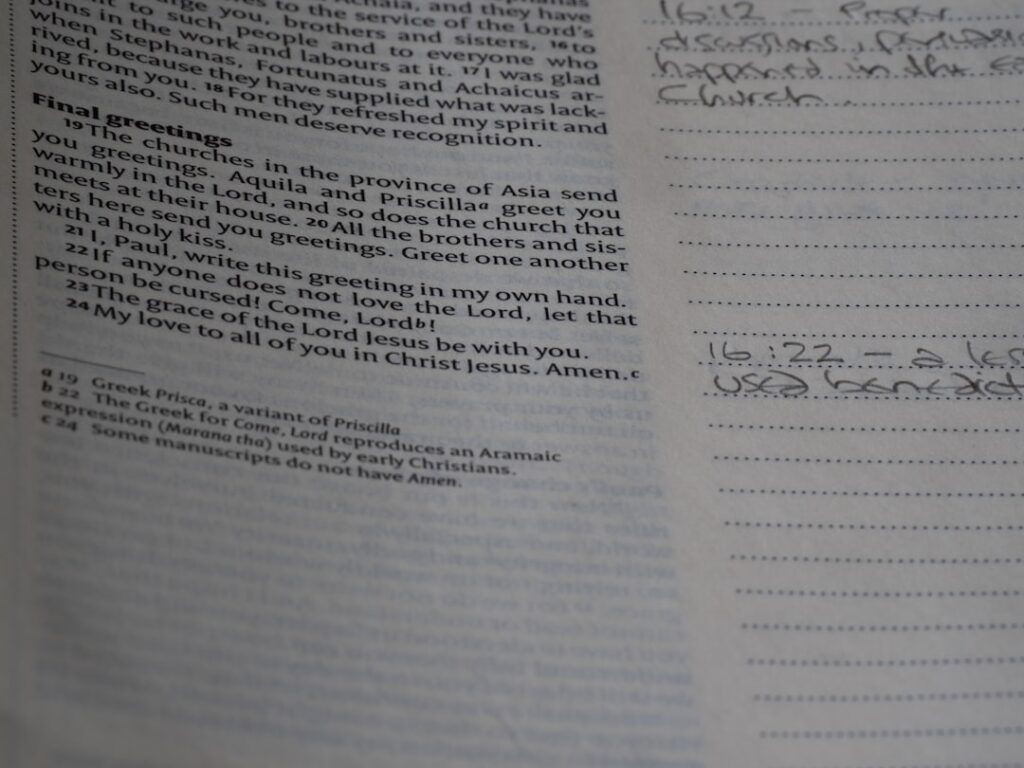 to the service of the Lord's
urge you, brothers and sisters, 16 to
to such people and to everyone who
joins in the work and labours at it. 17 I was glad
when Stephanas, Fortunatus and Achaicus ar-
rived, because they have supplied what was lack-
ing from you. 18 For they refreshed my spirit and
yours also. Such men deserve recognition.
Final greetings
19 The churches in the province of Asia send
you greetings. Aquila and Priscilla a greet you
warmly in the Lord, and so does the church that
meets at their house. 20 All the brothers and sis-
ters here send you greetings. Greet one another
with a holy kiss.
21 I, Paul, write this greeting in my own hand.
22 If anyone does not love the Lord, let that
person be cursed! Come, Lord b!
23 The grace of the Lord Jesus be with you.
24 My love to all of you in Christ Jesus. Amen. c
a 19 Greek Prisca, a variant of Priscilla
b 22 The Greek for Come, Lord reproduces an Aramaic
expression (Marana tha) used by early Christians.
c 24 Some manuscripts do not have Amen.
16:12 - Proper
discussions,
happened in the
Church.
16:22 - a
used